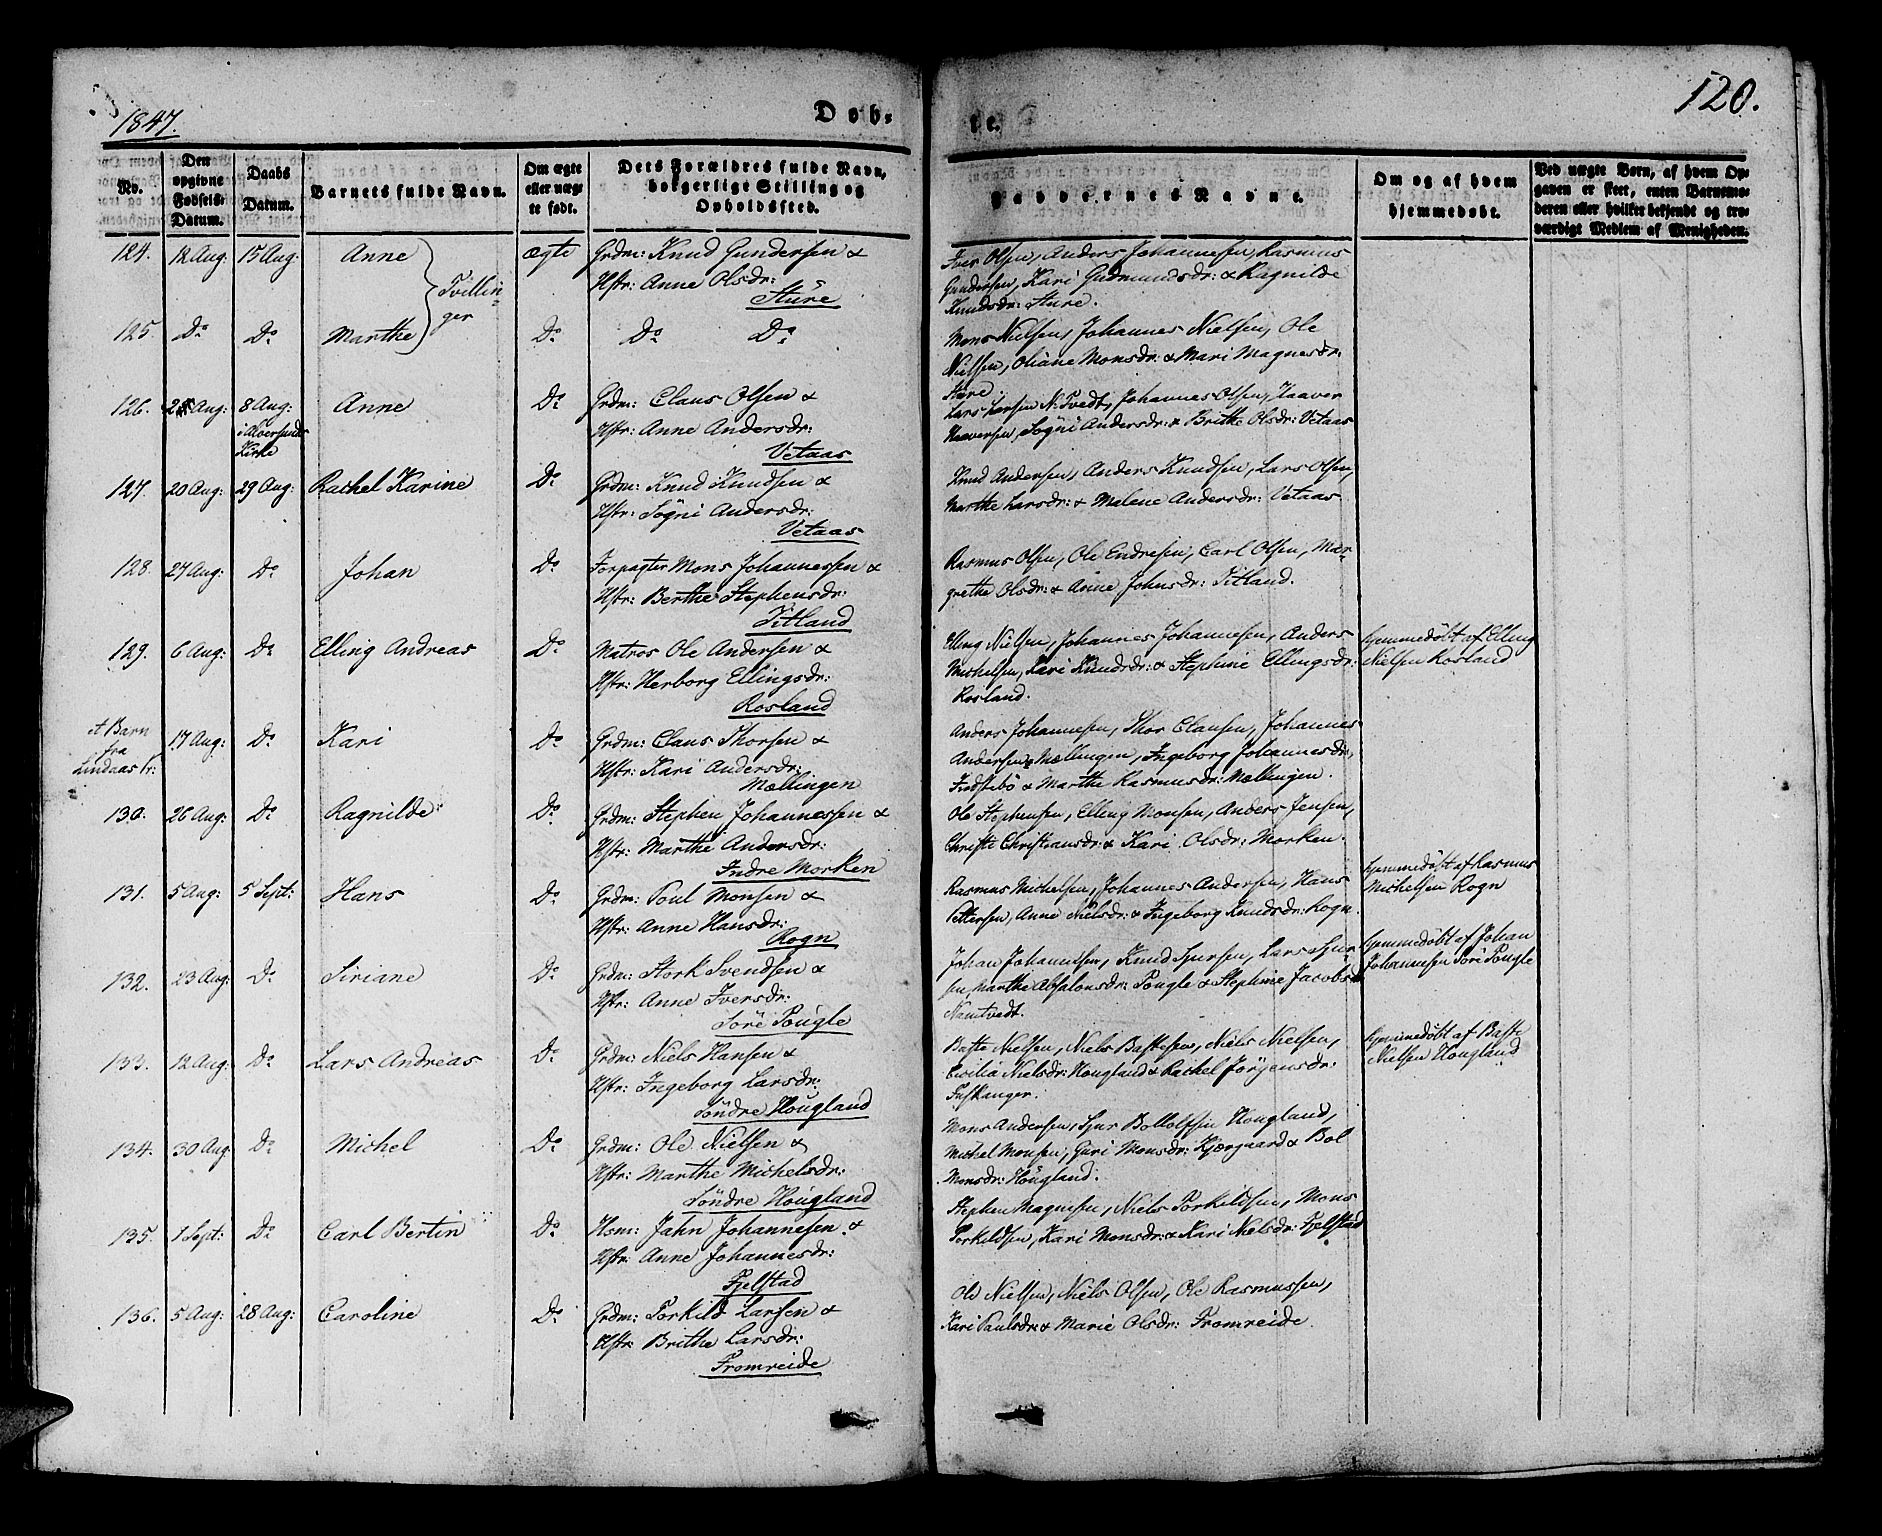 1847.
Døb-
te.
120.
No.
Den opgivne Fødsels-Datum.
Daabs Datum.
Barnets fulde Navn.
Om ægte eller uægte født.
Dets Forældres fulde Navn, borgerlige Stilling og Opholdssted.
Faddernes Navne.
Om og af hvem hjemmedøbt.
Ved uægte Børn, af hvem Opgaven er skeet, enten Barnemoderen eller hvilket bekjendt og troværdigt Medlem af Menigheden.
124. 12 Aug: 15 Aug: Anne } Tvillinger ægte Grdm: Knud Gundersen &
Hstr: Anne Olsdr:
Sture
Iver Olsen, Anders Johannesen, Rasmus
Gundersen, Kari Gudmundsdr: & Ragnilde
Knudsdr: Sture.
125. Do Do Marthe Do Do Do
Mons Nielsen, Johannes Nielsen, Ole
Nielsen, Oliane Monsdr: & Mari Magnesdr:
Sture
126. Aug: 8 Aug: i Alversunds Kirke Anne Do Grdm: Claus Olsen &
Hstr: Anne Andersdr:
Vetaas
Lars Larsen N: Tvedt, Johannes Olsen, Haaver
Haaversen, Sögni Andersdr: & Brithe Olsdr: Vetaas
127. 20 Aug: 29 Aug: Rachel Karine Do Grdm: Knud Knudsen &
Hstr: Sögni Andersdr:
Vetaas
Knud Andersen, Anders Knudsen, Lars Olsen,
Marthe Larsdr: & Malene Andersdr: Vetaas
128. 27 Aug: Do Johan Do Forpagter Mons Johannessen &
Hstr: Berthe Stephensdr:
Titland
Rasmus Olsen, Ole Endresen, Carl Olsen, Mar-
grethe Olsdr: & Anne Johnsdr: Titland.
129. 6 Aug: Do Elling Andreas Do Matros Ole Andersen &
Hstr: Herborg Ellingsdr:
Rosland
Elling Nielsen, Johannes Johannesen, Anders
Michelsen, Kari Knudsdr: & Stephine Ellingsdr:
Rosland.
hjemmedöbt af Elling
Nielsen Rosland
et Barn fra Lindaas Pr: 17 Aug: Do Kari Do Grdm: Claus Thorsen &
Hstr: Kari Andersdr:
Mællingen
Anders Johannesen, Thor Clausen, Johannes
Andersen Mællingen, Ingeborg Johannesdr:
Fredsebö & Marthe Rasmusdr: Mællingen.
130. 26 Aug: Do Ragnilde Do Grdm: Stephen Johannessen &
Hstr: Marthe Andersdr:
Indre Morken
Ole Stephensen, Elling Monsen, Anders Jensen,
Christi Christiansdr: & Kari Olsdr: Morken.
131. 5 Aug: 5 Sept: Hans Do Grdm: Poul Monsen &
Hstr: Anne Hansdr:
Rogn
Rasmus Michelsen, Johannes Andersen, Hans
Pettersen, Anne Nielsdr: & Ingeborg Knudsdr: Rogn.
hjemmedöbt af Rasmus
Michelsen Rogn
132. 23 Aug: Do Siriane Do Grdm: Stork Svendsen &
Hstr: Anne Iversdr:
Söre Tougle
Johan Johannesen, Knud Sjursen, Lars Sjur-
sen, Marthe Absalonsdr: Tougle & Stephine Jacobsdr
Namtvedt.
hjemmedöbt af Johan
Johannesen Söre Tougle
133. 12 Aug: Do Lars Andreas Do Grdm: Niels Hansen &
Hstr: Ingeborg Larsdr:
Söndre Hougland
Baste Nielsen, Niels Bastesen, Niels Nielsen,
Cicilia Nielsdr: Hougland & Rachel Jörgensdr:
Fuskanger.
hjemmedöbt af Baste
Nielsen Hougland
134. 30 Aug: Do Michel Do Grdm: Ole Nielsen &
Hstr: Marthe Michelsdr:
Söndre Hougland
Mons Andersen, Sjur Bottolfsen Hougland,
Michel Monsen, Guri Monsdr: Kjærgaard & Bol
Monsdr: Hougland.
135. 1 Sept: Do Carl Bertin Do Hsm: Jahn Johannesen &
Hstr: Anne Johannesdr:
Fjelstad
Stephen Magnesen, Niels Torkildsen, Mons
Torkildsen, Kari Monsdr: & Kari Nielsdr: Fjelstad
136. 5 Aug: 28 Aug: Caroline Do Grdm: Torkild Larsen &
Hstr: Brithe Larsdr:
Fromreide
Ole Nielsen, Niels Olsen, Ole Rasmussen,
Kari Paulsdr: & Marie Olsdr: Fromreide.